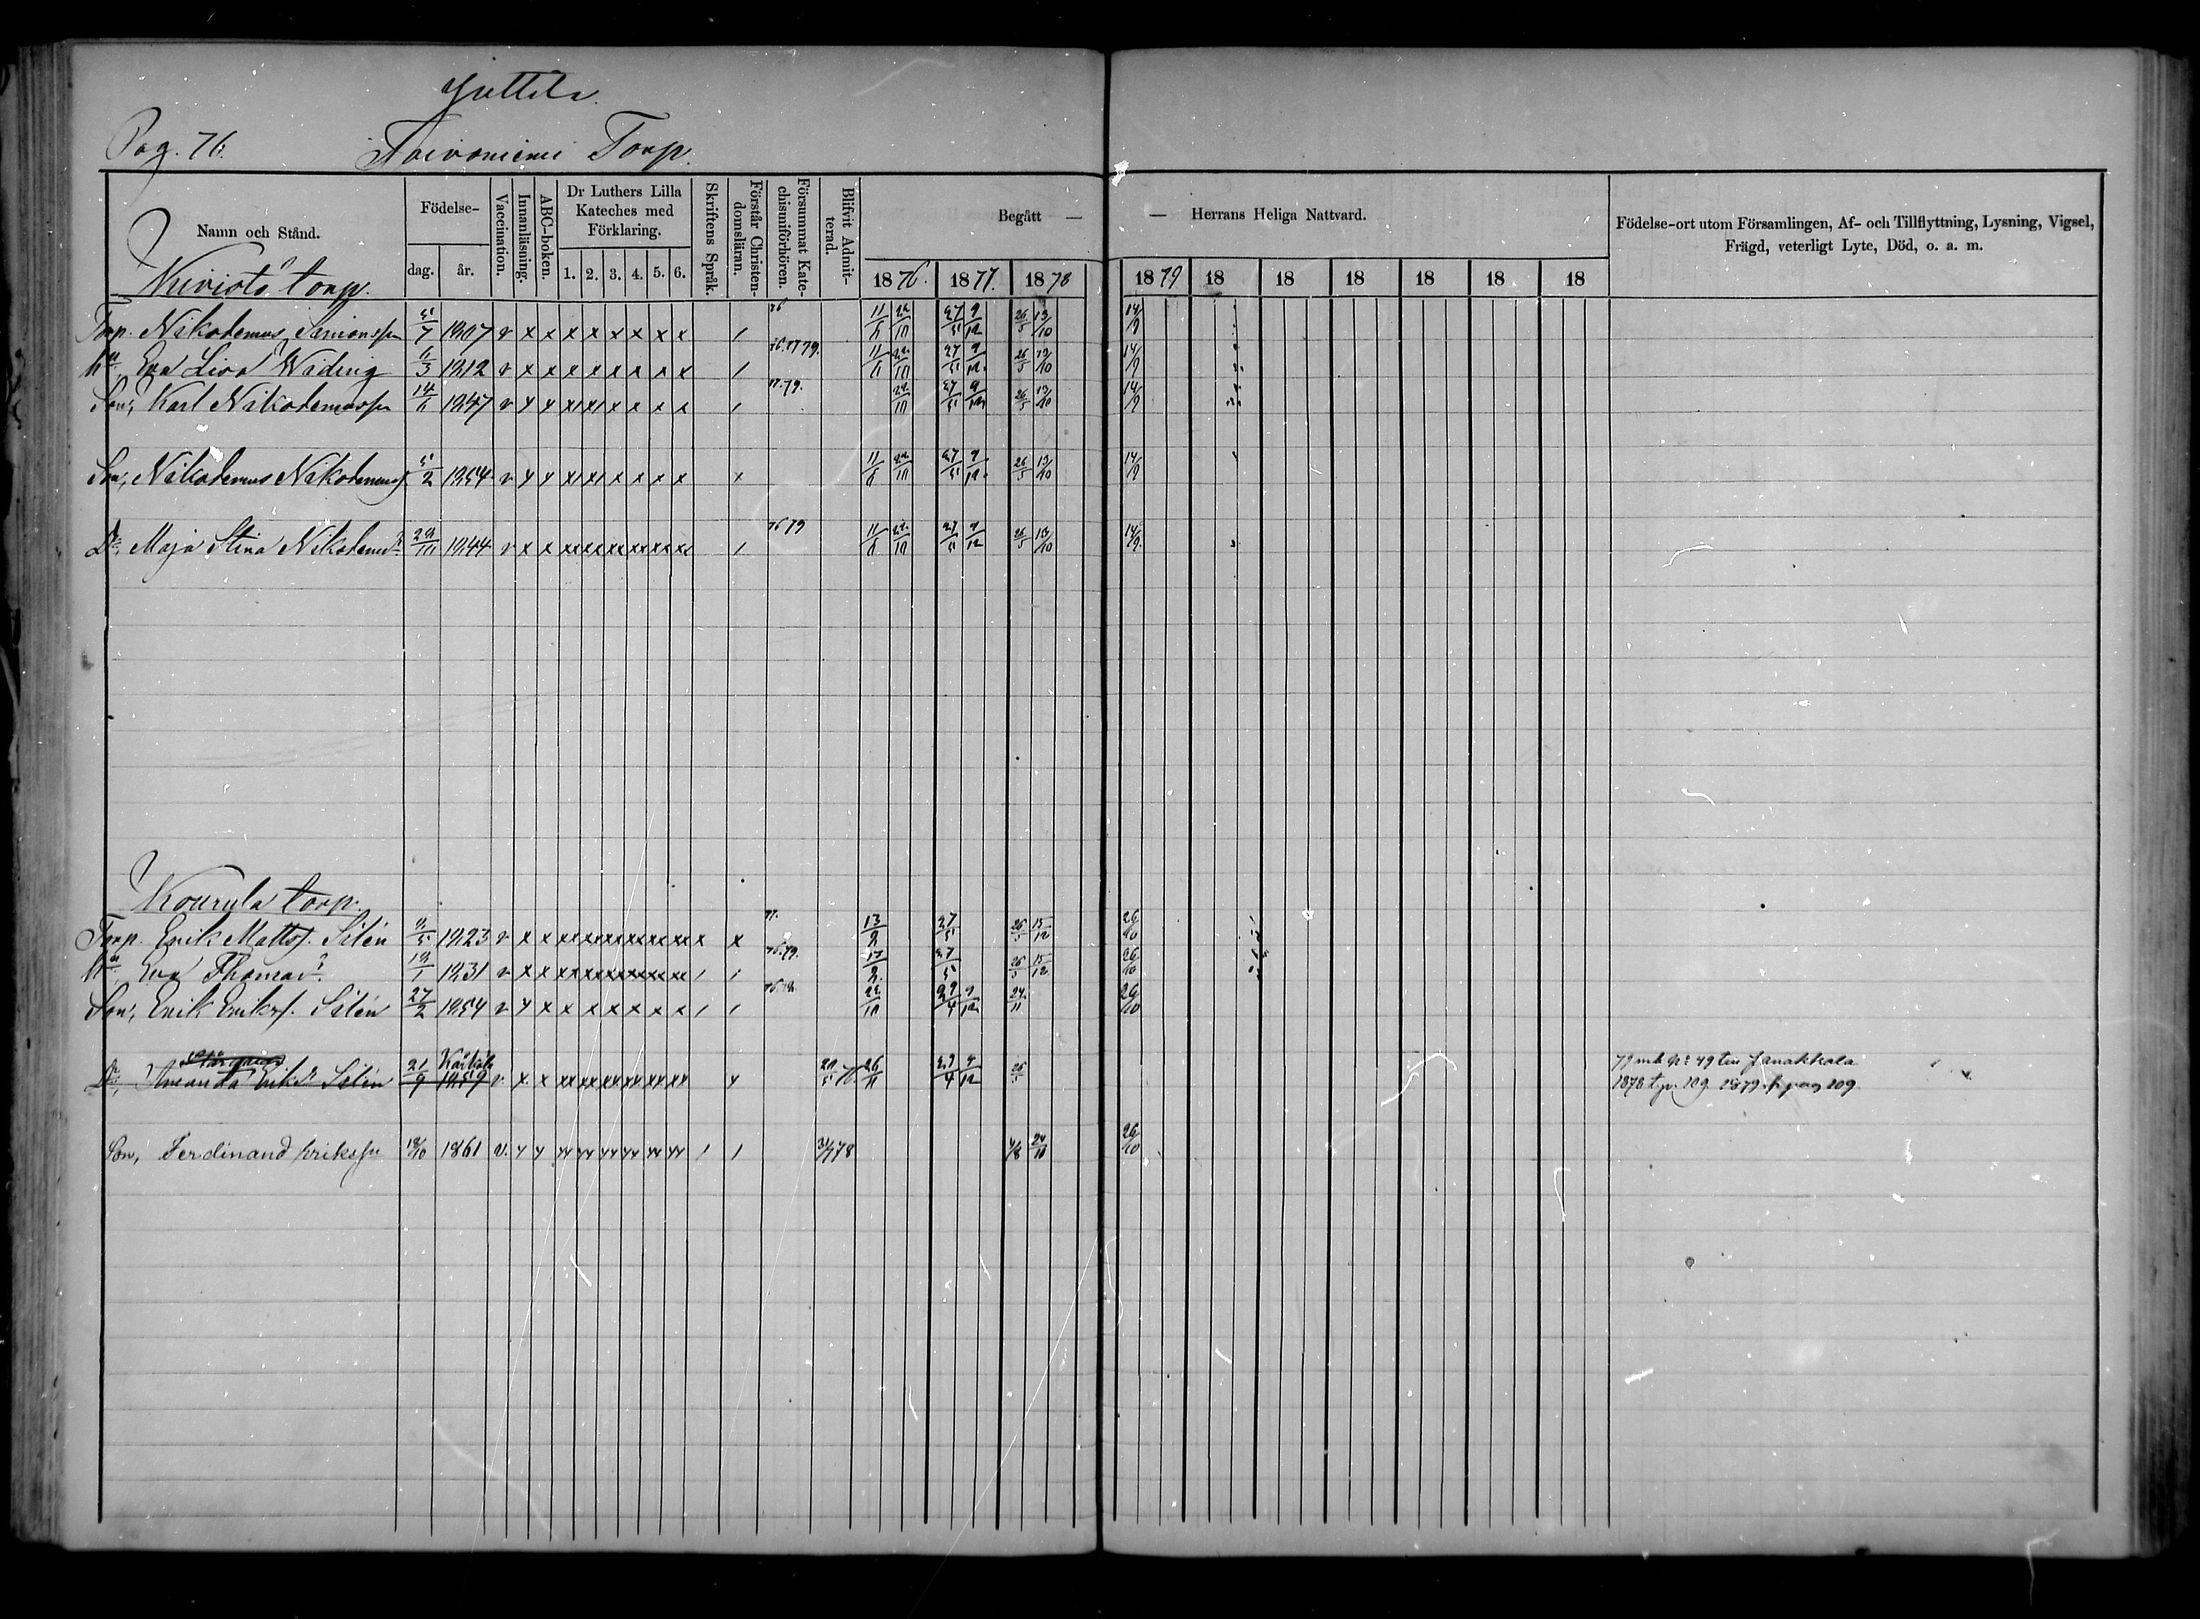 Juttila.
Pag. 76. Toivoniemi Torp.
Namn och Stånd. Födelse- dag. år. Vaccination. Innanläsning. ABC-boken. Dr Luthers Lilla Kateches med Förklaring. 1. 2. 3. 4. 5. 6. Skriftens Språk. Förstår Christendomsläran. Försummat Katechismiförhören. Blifvit Admitterad. Begått — — Herrans Heliga Nattvard. Födelse-ort utom Församlingen, Af- och Tillflyttning, Lysning, Vigsel, Frägd, veterligt Lyte, Död, o. a. m.
1876. 1877. 1878 1879 18 18 18 18 18 18
Kivistö torp.
Torp. Nikodemus Simonsson 5/7 1807 v x x x x x x x x / 76 11/6 22/10 27/5 9/12 26/5 13/10 14/9
Hu. Eva Lisa Widing 6/3 1812 v x x x x x x x x / 76.77 79. 11/6 22/10 27/5 9/12 26/5 13/10 14/9
Son, Karl Nikodemusson 14/6 1847 v / 77.79. 22/10 27/5 9/12 26/5 13/10 14/9
Son, Nikodemus Nikodemuss. 5/2 1854 v x 11/6 22/10 27/5 9/12 26/5 13/10 14/9
Dr. Maja Stina Nikodemi dr 1844 v x x xx xx xx xx xx xx / 76 79 11/6 22/10 27/5 9/12 26/5 13/10 14/9
Kourula torp.
Torp. Erik Matts. Silén 1823 v x x xx xx xx xx xx xx x x 77. 13/2 27/5 26/5 15/12 26/10
Hu. Eva Thomasdr 1831 v x x xx xx xx xx xx xx / / 76.79. 27/5 26/5 15/12 26/10
Son, Erik Eriks. Silén 27/2 1854 v / / 22/10 29/4 9/12 24/11 26/10
Dr, Amanda Eriksdr Silén 21/9 Kärkölä 1859 v. x x xx xx xx xx xx xx x 76 26/11 29/4 9/12 26/5 79 mb. Nr 49 till Janakkala
1878 t. p. 109 1879 fr pag 109.
Son, Ferdinand Eriksson 18/10 1861 v. / / 31/7 78 4/8 24/11 26/10